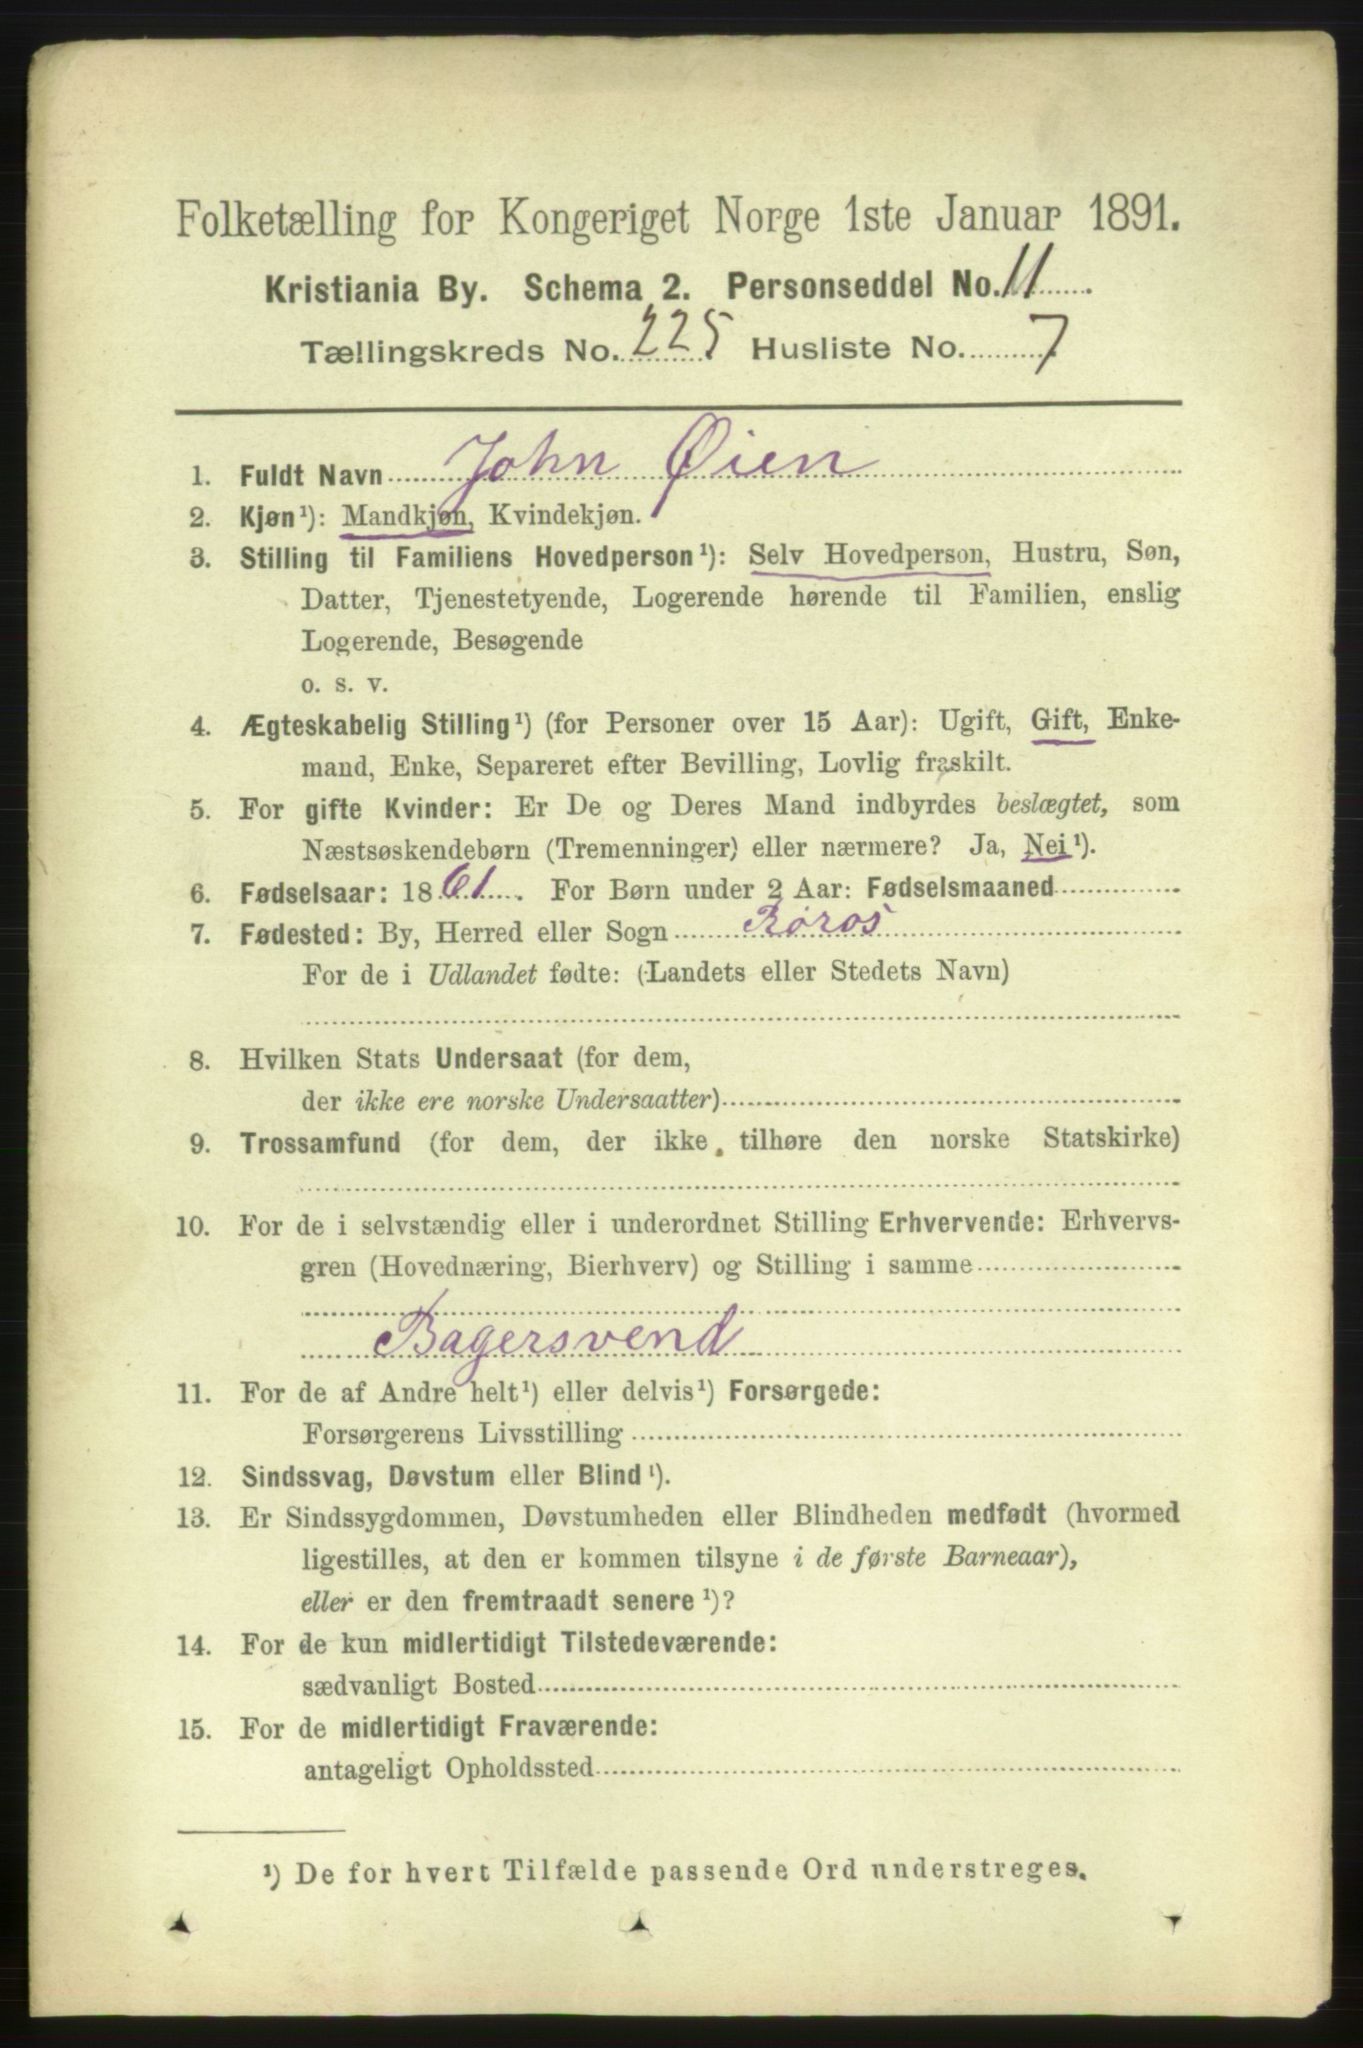 Folketælling for Kongeriget Norge 1ste Januar 1891.
Kristiania By. Schema 2. Personseddel No. 11
Tællingskreds No. 225 Husliste No. 7
1. Fuldt Navn John Øien
2. Kjøn¹): Mandkjøn, Kvindekjøn.
3. Stilling til Familiens Hovedperson¹): Selv Hovedperson, Hustru, Søn,
Datter, Tjenestetyende, Logerende hørende til Familien, enslig
Logerende, Besøgende
o. s. v.
4. Ægteskabelig Stilling¹) (for Personer over 15 Aar): Ugift, Gift, Enke-
mand, Enke, Separeret efter Bevilling, Lovlig fraskilt.
5. For gifte Kvinder: Er De og Deres Mand indbyrdes beslægtet, som
Næstsøskendebørn (Tremenninger) eller nærmere? Ja, Nei¹).
6. Fødselsaar: 1861. For Børn under 2 Aar: Fødselsmaaned
7. Fødested: By, Herred eller Sogn Røros
For de i Udlandet fødte: (Landets eller Stedets Navn)
8. Hvilken Stats Undersaat (for dem,
der ikke ere norske Undersaatter)
9. Trossamfund (for dem, der ikke tilhøre den norske Statskirke)
10. For de i selvstændig eller i underordnet Stilling Erhvervende: Erhvervs-
gren (Hovednæring, Bierhverv) og Stilling i samme
Bagersvend
11. For de af Andre helt¹) eller delvis¹) Forsørgede:
Forsørgerens Livsstilling
12. Sindssvag, Døvstum eller Blind¹).
13. Er Sindssygdommen, Døvstumheden eller Blindheden medfødt (hvormed
ligestilles, at den er kommen tilsyne i de første Barneaar),
eller er den fremtraadt senere¹)?
14. For de kun midlertidigt Tilstedeværende:
sædvanligt Bosted
15. For de midlertidigt Fraværende:
antageligt Opholdssted
¹) De for hvert Tilfælde passende Ord understreges.